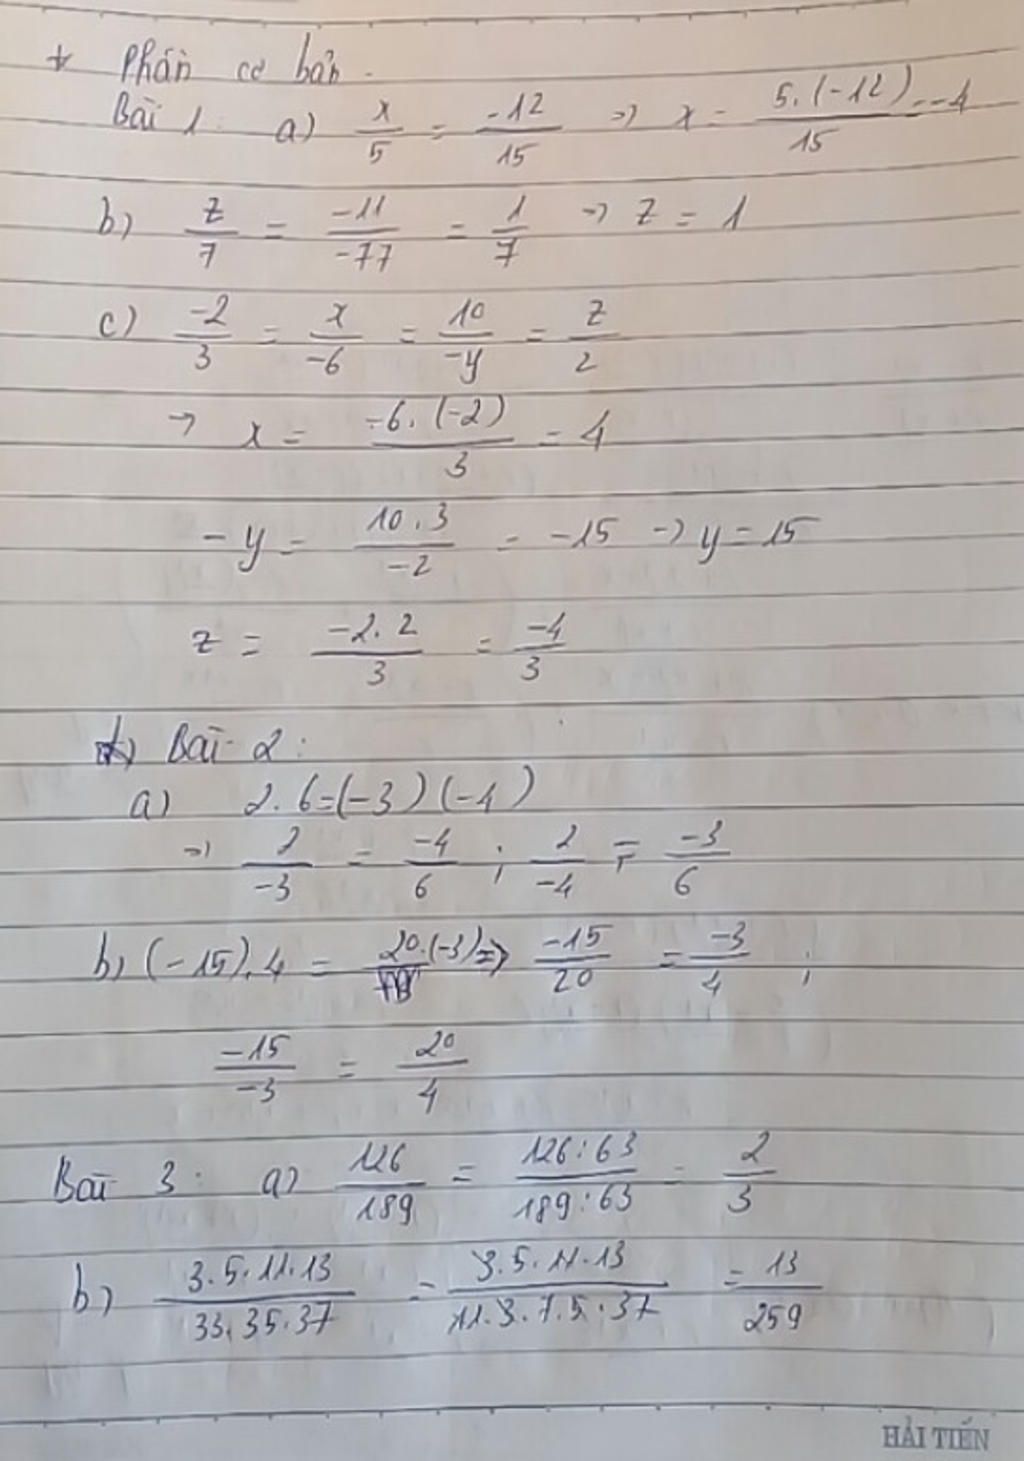 * Phần cơ bản.
Bài 1: a) x/5 = -12/15 => x = 5.(-12)/15 = -4
b) z/7 = -11/-77 = 1/7 -> z = 1
c) -2/3 = x/-6 = 10/-y = z/2
-> x = -6.(-2)/3 = 4
-y = 10.3/-2 = -15 -> y = 15
z = -2.2/3 = -4/3
Bài 2:
a) 2.6=(-3)(-4)
=> 2/-3 = -4/6 ; 2/-4 = -3/6
b) (-15).4 = 20.(-3) => -15/20 = -3/4 ;
-15/-3 = 20/4
Bài 3: a) 126/189 = 126:63/189:63 = 2/3
b) 3.5.11.13/33.35.37 = 3.5.11.13/11.3.7.5.37 = 13/259
HẢI TIẾN